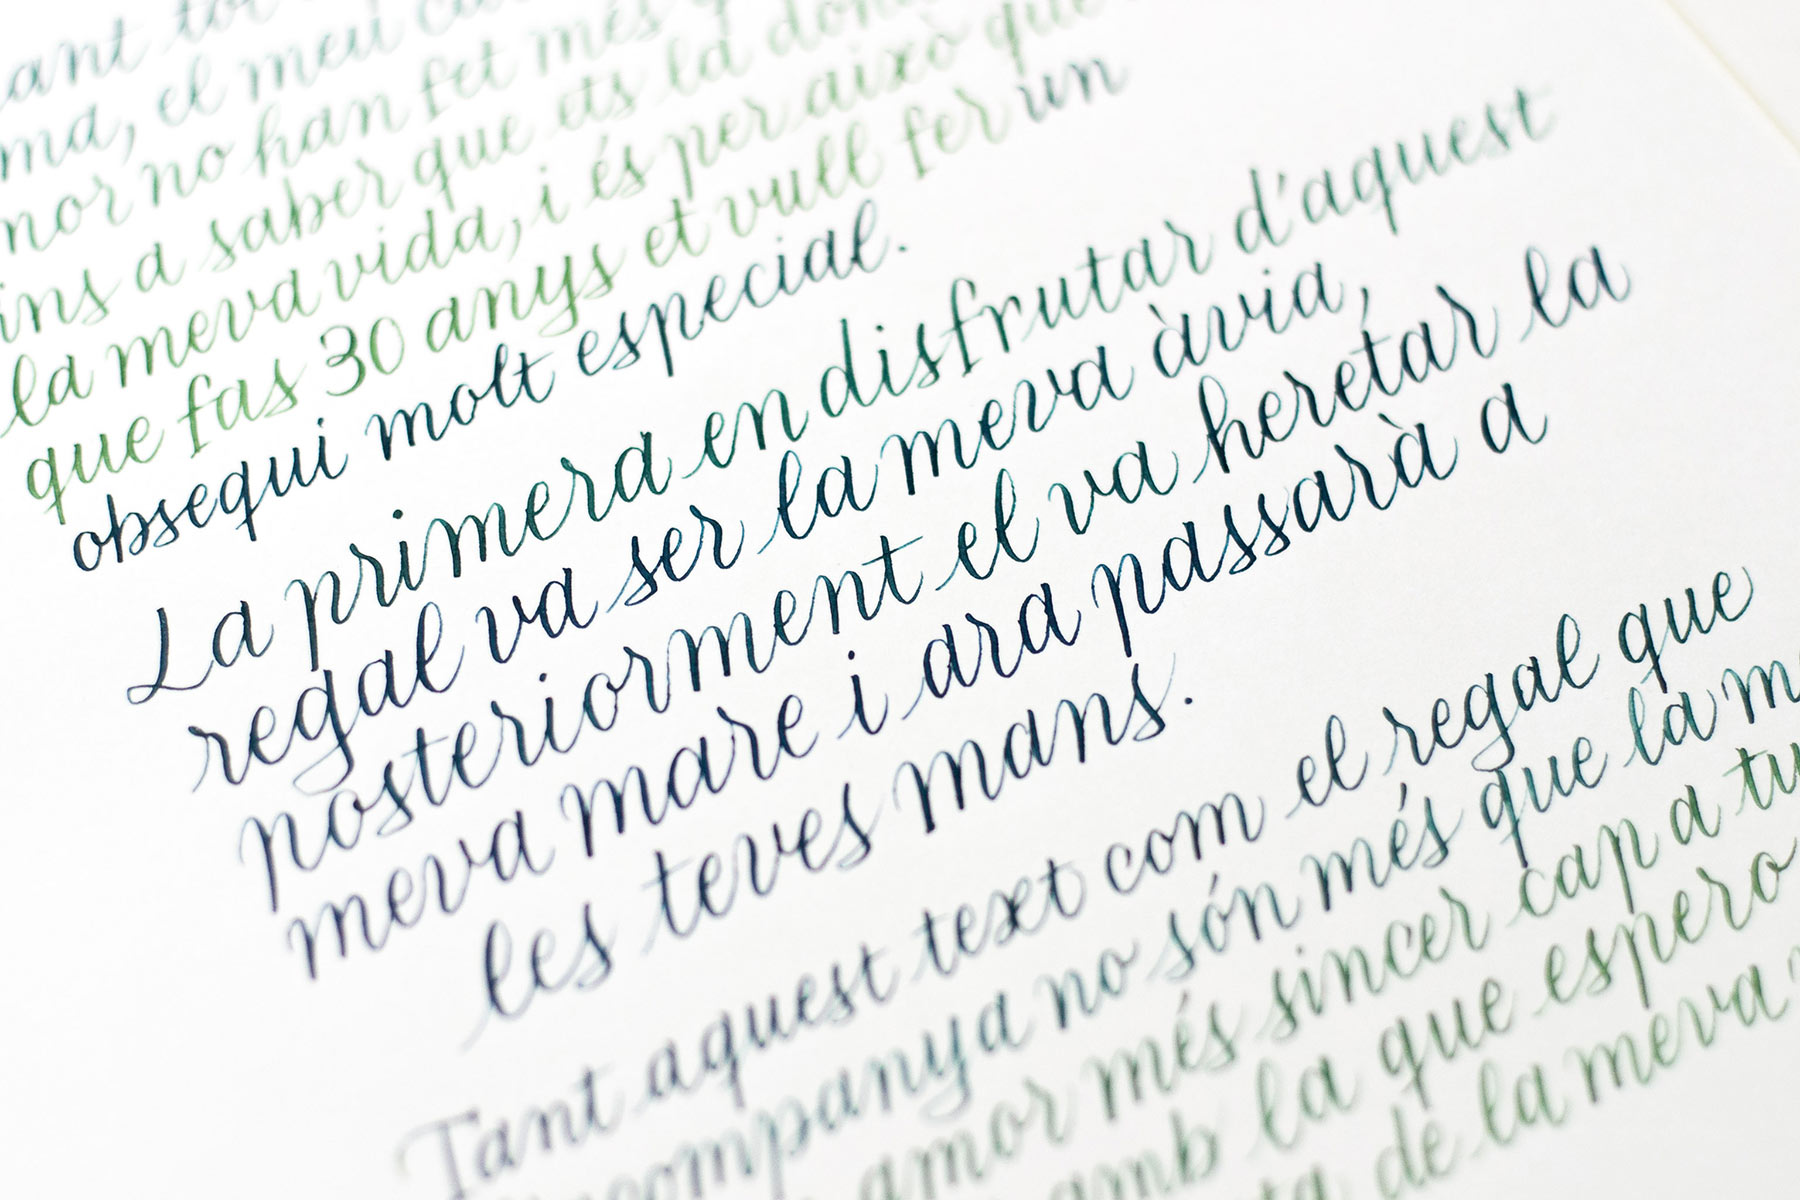 ant tot
ma, el meu
mor no han fet més
ins a saber que ets la dona
la meva vida, i és per això que
que fas 30 anys et vull fer un
obsequi molt especial.
La primera en disfrutar d'aquest
regal va ser la meva àvia,
posteriorment el va heretar la
meva mare i ara passarà a
les teves mans.
Tant aquest text com el regal que
companya no són més que la m
amor més sincer cap a tu
amb la que espero
de la meva